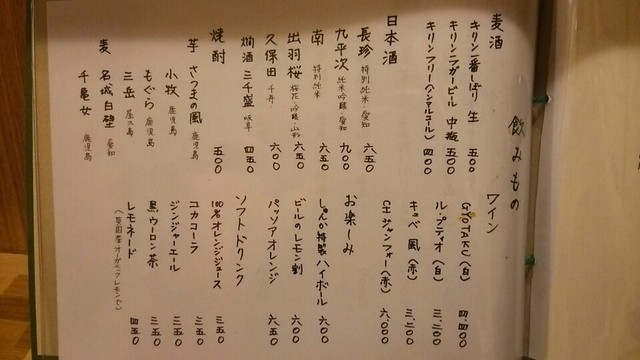 飲みもの
麦酒
キリン一番しぼり 生 五〇〇
キリンラガービール 中瓶 五〇〇
キリンフリー(ノンアルコール) 四〇〇
日本酒
長珍 特別純米・愛知 六五〇
九平次 純米吟醸・愛知 九〇〇
南 特別純米 六五〇
出羽桜 桜花・吟醸・山形 六五〇
久保田 千寿 六〇〇
燗酒 三千盛 岐阜 四五〇
焼酎
芋 さつまの風 鹿児島 五〇〇
小牧 鹿児島
もぐら 鹿児島
三岳 屋久島
麦 名城白壁 愛知
千亀女 鹿児島
ワイン
GYOTAKU(白) 四、四〇〇
ル・プティオ(白) 三、二〇〇
キュベ 風(赤) 三、二〇〇
(赤) 六、〇〇〇
お楽しみ
しゅんか特製ハイボール 六〇〇
ビールのレモン割 六〇〇
パッソアオレンジ 六五〇
ソフトドリンク
100%オレンジジュース 三五〇
コカコーラ 三五〇
ジンジャーエール 三五〇
黒ウーロン茶 三五〇
レモネード 四五〇
(英国産オーガニックレモンで)